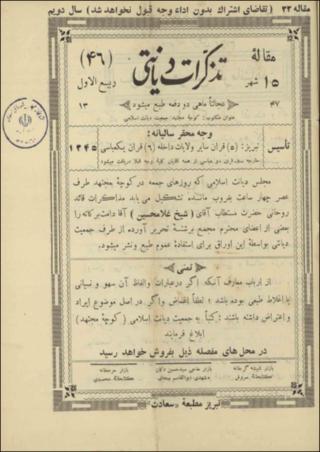 مقاله ۲۲ (تقاضای اشتراك بدون اداء وجه قبول نخواهد شد) سال دویم
مقالهٔ (۴۶)
تذکرات دیانتی
۱۵ شهر ربیع الاول
۴۷ مجاناً ماهی دو دفعه طبع میشود ۱۳
عنوان مکتوب: کوچهٔ مجتهد: جمعیت دیانت اسلامی
وجه محقر سالیانه:
تاسیس تبریز: (۵) قران سایر ولایات داخله (۶) قران یکعباسی ۱۳۴۵
مجلس دیانت اسلامی که روزهای جمعه در کوچهٔ مجتهد طرف
عصر چهار ساعت بغروب مانده تشکیل می یابد مذاکرات قائد
روحانی حضرت مستطاب آقای (شیخ غلامحسین) آقا دامت برکاته را
بعضی از اعضای محترم مجمع برشتهٔ تحریر آورده از طرف جمعیت
دیانتی بواسطهٔ این اوراق برای استفادهٔ عموم طبع ونشر میشود.
تمنی
از ارباب معارف آنکه اگر درعبارات والفاظ آن سهو و نسیانی
یا اغلاط طبعی بوده باشد؛ لطفاً اغماض واگر در اصل موضوع ایراد
و اعتراض داشته باشند؛ کتباً به جمعیت دیانت اسلامی (کوچهٔ مجتهد)
ابلاغ فرمایند
در محل‌های مفصله ذیل بفروش خواهد رسید
بازار شیشه گرخانه بازار حاجی سیدحسین دکان بازار حرمخانه
کتابخانهٔ سروش مشهدی ابوالقاسم کتابخانهٔ محمدی
تبریز مطبعهٔ سعادت